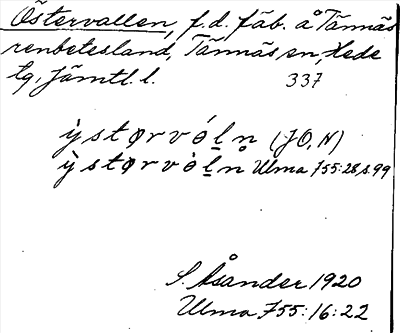 Östervallen, f.d. fäb. å Tännäs
renbetesland, Tännäs sn, Hede
tg, Jämtl. l. 337
ỳstǫrvó́ḷn̥ (JO, N)
ỳstǫrvòḷn Ulma 755:28, s. 99
S. Åsander 1920
Ulma 755:16:22